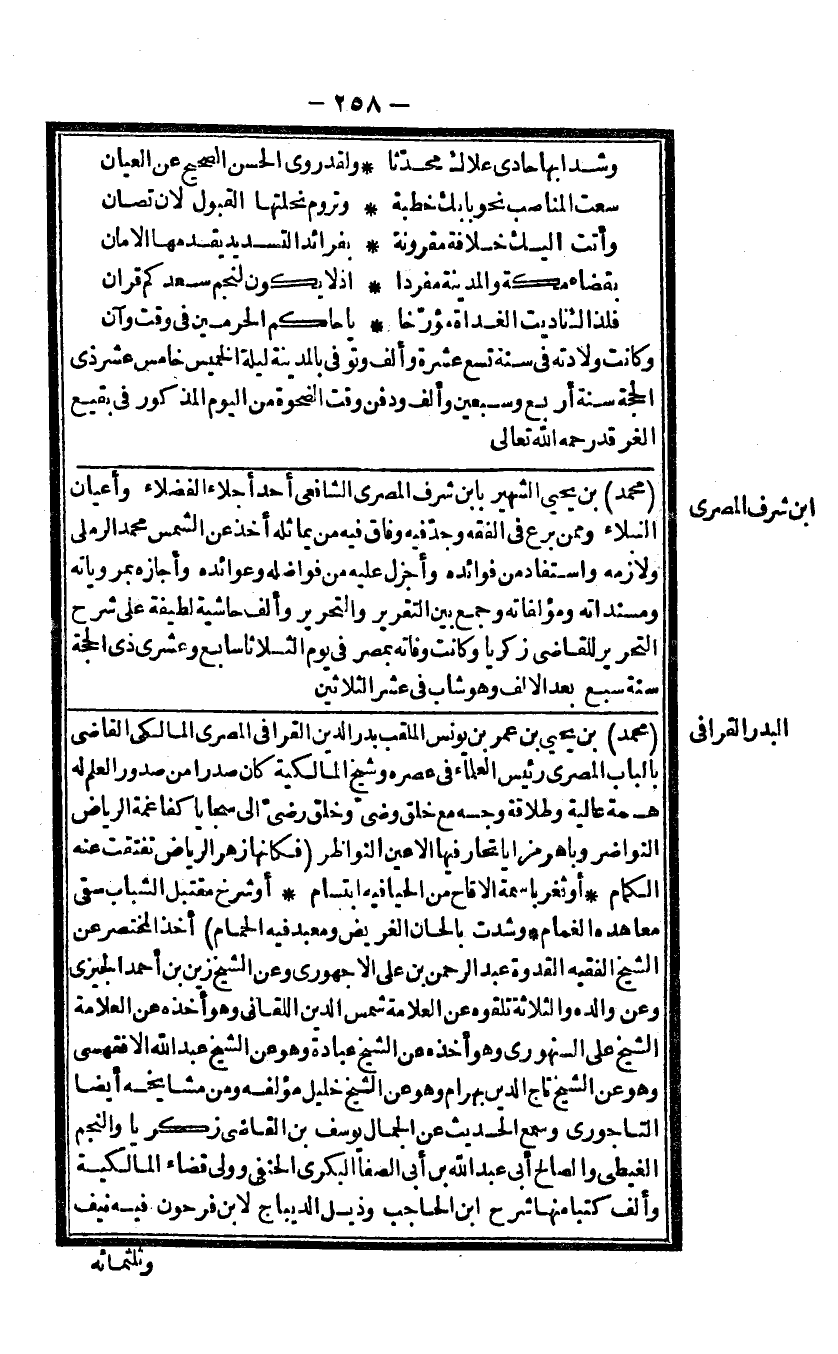 — ٢٥٨ —
وشدا بها حادى علاك محدّثا * ولقد روى الحسن الصحيح عن العيان
سعت المناصب نحو بابك خطبة * وتروم نحلتها القبول لان تصان
وأتت اليك خلافة مقرونة * بفرائد التسديد يقدمها الامان
بقضاء مكة والمدينة مفردا * اذ لا يكون لنجم سعد كم قران
فلذاك ناديت الغداة مؤرّخا * يا حاكم الحرمين فى وقت وآن
وكانت ولادته فى سنة تسع عشرة وألف وتوفى بالمدينة ليلة الخميس خامس عشر ذى
الحجة سنة أربع وسبعين وألف ودفن وقت الضحوة من اليوم المذكور فى بقيع
الغرقد رحمه الله تعالى
ابن شرف المصرى
(محمد) بن يحيى الشهير بابن شرف المصرى الشافعى أحد أجلاء الفضلاء وأعيان
النبلاء وممن برع فى الفقه وجدّ فيه وفاق فيه من يماثله أخذ عن الشمس محمد الرملى
ولازمه واستفاد من فوائده وأجزل عليه من فواضله وعوائده وأجازه بمروياته
ومسنداته ومؤلفاته وجمع بين التقرير والتحرير وألف حاشية لطيفة على شرح
التحرير للقاضى زكريا وكانت وفاته بمصر فى يوم الثلاثا سابع وعشرى ذى الحجة
سنة سبع بعد الالف وهو شاب فى عشر الثلاثين
البدر القرافى
(محمد) بن يحيى بن عمر بن يونس الملقب بدر الدين القرافى المصرى المالكى القاضى
بالباب المصرى رئيس العلماء فى عصره وشيخ المالكية كان صدرا من صدور العلم له
همة عالية وطلاقة وجه مع خلق وضىّ وخلق رضىّ الى سجايا كفاغمة الرياض
النواضر وباهر مزايا تتحار فيها الاعين النواظر (فكانها زهر الرياض تفتقت عنه
الكمام * أو ثغر باسمة الاقاح من الحيا فيه ابتسام * أو شرخ مقتبل الشباب سقى
معاهده الغمام * وشدت بالحان الغريض ومعبد فيه الحمام) أخذ المختصر عن
الشيخ الفقيه القدوة عبد الرحمن بن على الاجهورى وعن الشيخ زين بن أحمد الجيزى
وعن والده والثلاثة تلقوه عن العلامة شمس الدين اللقانى وهو أخذه عن العلامة
الشيخ على السنهورى وهو أخذه عن الشيخ عبادة وهو عن الشيخ عبد الله الافقهسى
وهو عن الشيخ تاج الدين بهرام وهو عن الشيخ خليل مؤلفه ومن مشايخه أيضا
التاجورى وسمع الحديث عن الجمال يوسف بن القاضى زكريا والنجم
الغيطى والصالح أبى عبد الله بن أبى الصفا البكرى الحنفى وولى قضاء المالكية
وألف كتبا منها شرح ابن الحاجب وذيل الديباج لابن فرحون فيه نيف
وثلثمائه